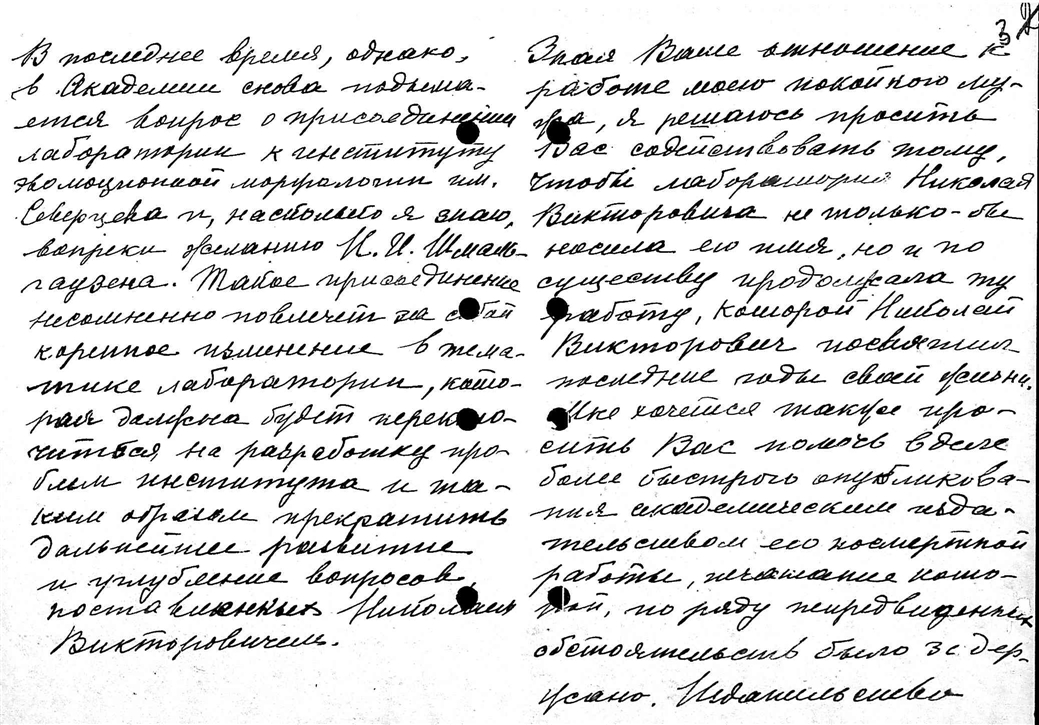 3
В последнее время, однако,
в Академии снова подыма-
ется вопрос о присоединении
лаборатории к институту
эволюционной морфологии им.
Северцева и, насколько я знаю,
вопреки желанию И. И. Шмаль-
гаузена. Такое присоединение
несомненно повлечет за собой
коренное изменение в тема-
тике лаборатории, кото-
рая должна будет переклю-
читься на разработку про-
блем института и та-
ким образом прекратить
дальнейшее развитие
и углубление вопросов,
поставленных Николаем
Викторовичем.
Зная Ваше отношение к
работе моего покойного му-
жа, я решаюсь просить
Вас содействовать тому,
чтобы лаборатория Николая
Викторовича не только-бы
носила его имя, но и по
существу продолжала ту
работу, которой Николай
Викторович посвятил
последние годы своей жизни.
Мне хочется также про-
сить Вас помочь в деле
более быстрого опубликова-
ния академическим изда-
тельством его посмертной
работы, печатание кото-
рой, по ряду непредвиденных
обстоятельств было задер-
жано. Издательство